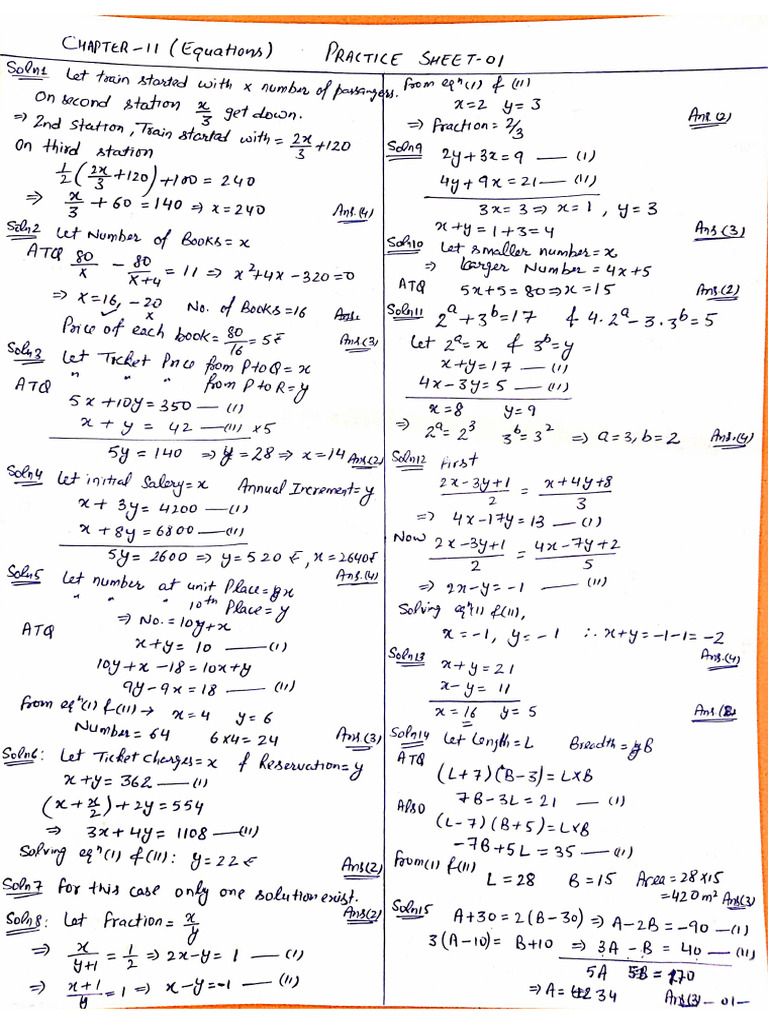 CHAPTER-11 (Equations) PRACTICE SHEET-01
Soln1 Let train started with x number of passangers.
On second station x/3 get down.
⇒ 2nd Station, Train started with = 2x/3 + 120
On third station
1/2 (2x/3 + 120) + 100 = 240
⇒ x/3 + 60 = 140 ⇒ x = 240 Ans.(4)
Soln2 Let Number of Books = x
ATQ 80/x - 80/(x+4) = 11 ⇒ x²+4x-320=0
⇒ x = 16, -20 No. of Books = 16 Ans.
✓ x
Price of each book = 80/16 = 5₹ Ans(3)
Soln3 Let Ticket Price from P to Q = x
ATQ " " " from P to R = y
5x + 10y = 350 — (1)
x + y = 42 — (11) ×5
5y = 140 ⇒ y = 28 ⇒ x = 14 Ans(2)
Soln4 Let initial Salery = x Annual Increment = y
x + 3y = 4200 — (1)
x + 8y = 6800 — (11)
5y = 2600 ⇒ y = 520 ₹, x = 2640₹
Ans.(4)
Soln5 Let number at unit Place = x
" " " 10th Place = y
⇒ No. = 10y+x
ATQ x+y = 10 — (1)
10y+x-18 = 10x+y
9y-9x = 18 — (11)
From eqn(1) & (11) → x = 4 y = 6
Number = 64 6×4 = 24 Ans.(3)
Soln6: Let Ticket charges = x & Reservation = y
x+y = 362 — (1)
(x + x/2) + 2y = 554
⇒ 3x + 4y = 1108 — (11)
Solving eqn(1) & (11): y = 22 ₹ Ans(2)
Soln7 For this case only one solution exist.
Ans(2)
Soln8: Let Fraction = x/y
⇒ x/(y+1) = 1/2 ⇒ 2x-y = 1 — (1)
⇒ (x+1)/y = 1 ⇒ x-y = -1 — (11)
From eqn(1) & (11)
x = 2 y = 3
⇒ Fraction = 2/3 Ans(2)
Soln9 2y + 3x = 9 — (1)
4y + 9x = 21 — (11)
3x = 3 ⇒ x = 1, y = 3
x+y = 1+3 = 4 Ans(3)
Soln10 Let smaller number = x
⇒ Larger Number = 4x+5
ATQ 5x+5 = 80 ⇒ x = 15 Ans.(2)
Soln11 2^a + 3^b = 17 & 4.2^a - 3.3^b = 5
Let 2^a = x & 3^b = y
x+y = 17 — (1)
4x-3y = 5 — (11)
x = 8 y = 9
⇒ 2^a = 2^3 3^b = 3^2 ⇒ a = 3, b = 2 Ans.(4)
Soln12 First
(2x-3y+1)/2 = (x+4y+8)/3
⇒ 4x-17y = 13 — (1)
Now (2x-3y+1)/2 = (4x-7y+2)/5
⇒ 2x-y = -1 — (11)
Solving eqn(1) &(11),
x = -1, y = -1 ∴ x+y = -1-1 = -2
Ans.(4)
Soln13 x+y = 21
x-y = 11
x = 16 y = 5 Ans
Soln14 Let Length = L Breadth = B
ATQ
(L+7)(B-3) = L×B
7B-3L = 21 — (1)
Also
(L-7)(B+5) = L×B
-7B+5L = 35 — (11)
From(1) &(11)
L = 28 B = 15 Area = 28×15
= 420 m² Ans(3)
Soln15 A+30 = 2(B-30) ⇒ A-2B = -90 — (1)
3(A-10) = B+10 ⇒ 3A - B = 40 — (11)
5A = 170
⇒ A = 34 Ans(3) -01-